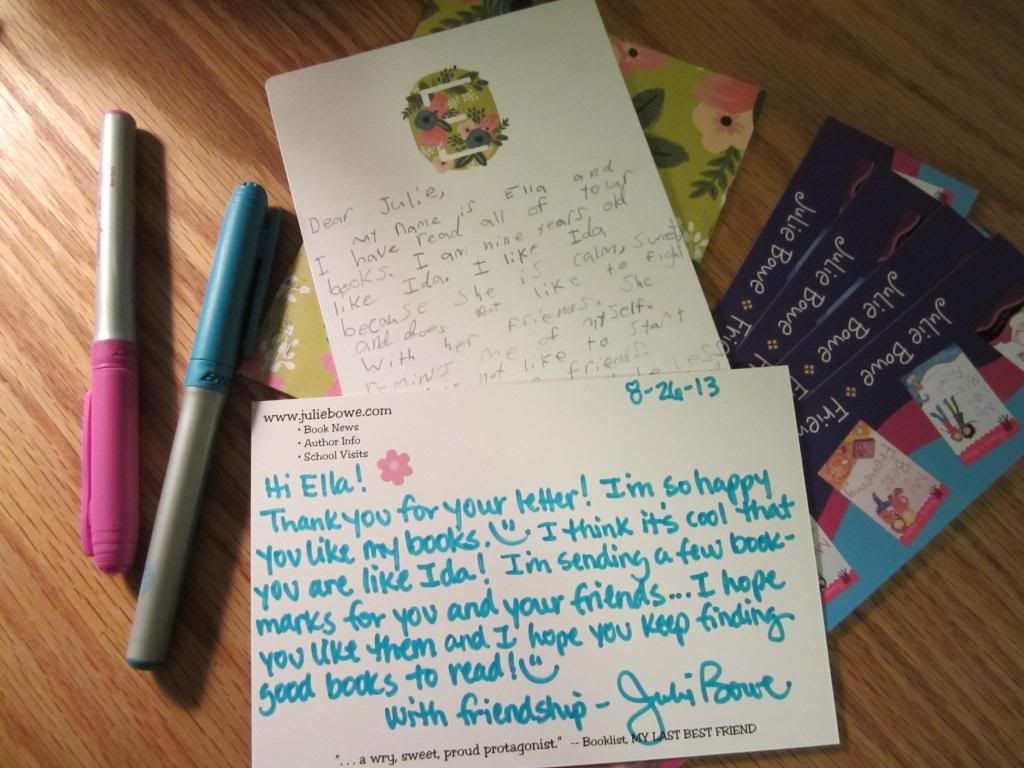 E
Dear Julie,
my name is Ella and
I have read all of your
books. I am nine years old
like Ida. I like Ida
because she is calm, sweet
and does not like to fight
with her friends. She
reminds me of myself.
not like to start
friends.
www.juliebowe.com
8-26-13
• Book News
• Author Info
• School Visits
Hi Ella!
Thank you for your letter! I'm so happy
you like my books. I think it's cool that
you are like Ida! I'm sending a few book-
marks for you and your friends... I hope
you like them and I hope you keep finding
good books to read!
with friendship - Juli Bowe
"... a wry, sweet, proud protagonist." -- Booklist, MY LAST BEST FRIEND
Julie Bowe
Frie
Julie Bowe
Frien
Julie Bowe
Frien
Julie Bowe
Frien